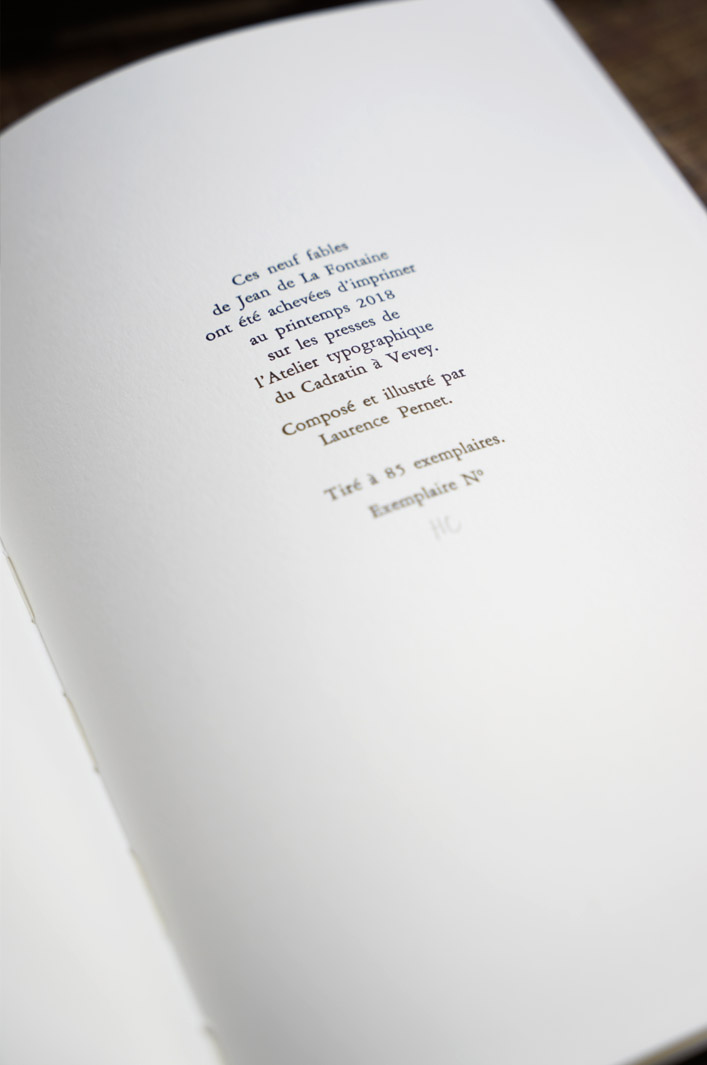 Ces neuf fables
de Jean de La Fontaine
ont été achevées d'imprimer
au printemps 2018
sur les presses de
l'Atelier typographique
du Cadratin à Vevey.
Composé et illustré par
Laurence Pernet.
Tiré à 85 exemplaires.
Exemplaire Nº
HC